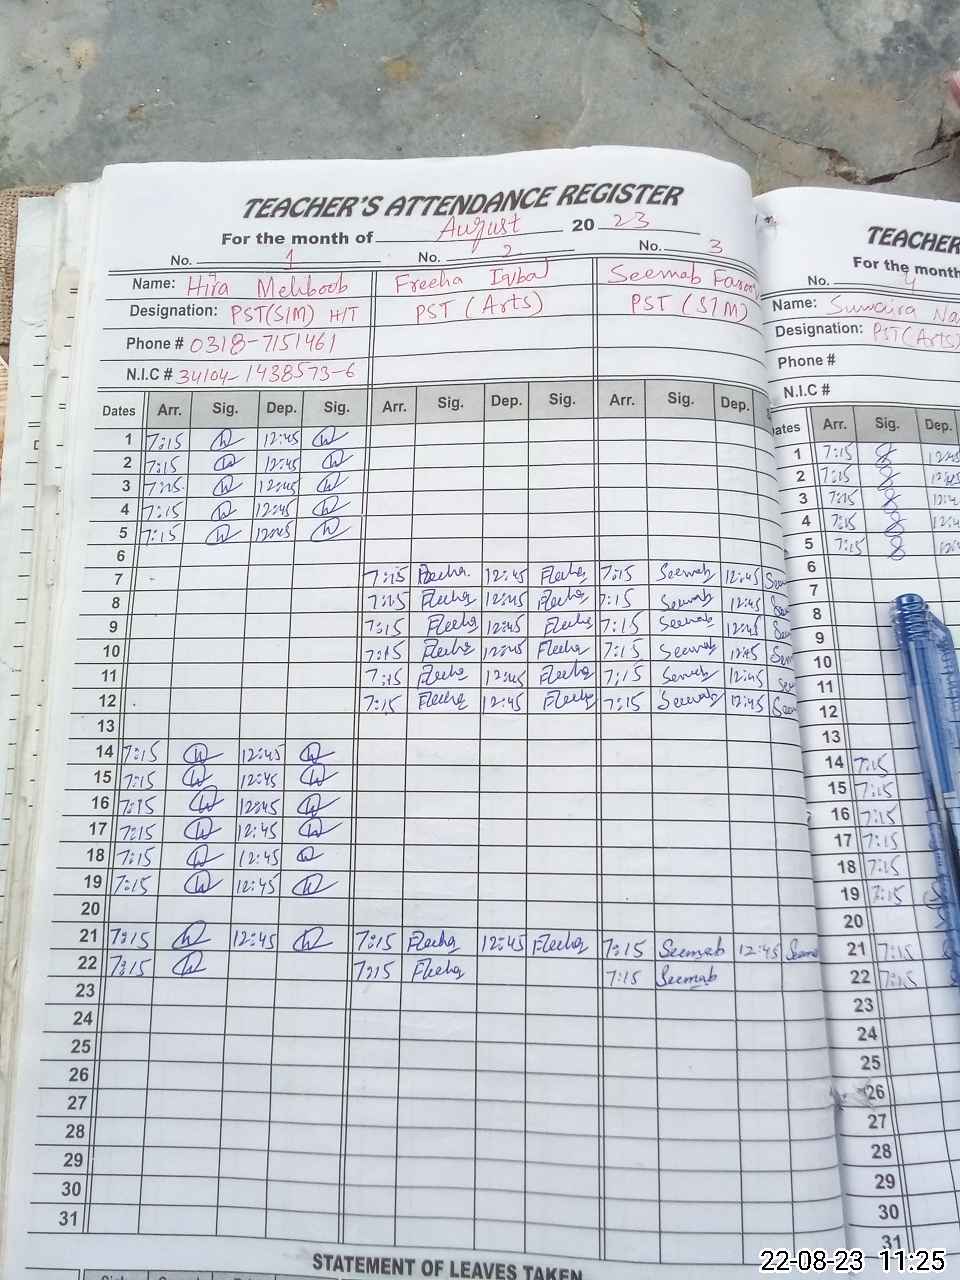 TEACHER'S ATTENDANCE REGISTER
For the month of August 20 23
No. 1 No. 2 No. 3
Name: Hira Mehboob Freeha Iqbal Seemab Faroo
Designation: PST(S/M) H/T PST (Arts) PST (S/M)
Phone # 0318-7151461
N.I.C # 34104-1438573-6
Dates Arr. Sig. Dep. Sig. Arr. Sig. Dep. Sig. Arr. Sig. Dep.
1 7:15 12:45
2 7:15 12:45
3 7:15 12:45
4 7:15 12:45
5 7:15 12:45
6
7 7:15 Freeha 12:45 Freeha 7:15 Seemab 12:45 Seem
8 7:15 Freeha 12:45 Freeha 7:15 Seemab 12:45 See
9 7:15 Freeha 12:45 Freeha 7:15 Seemab 12:45 See
10 7:15 Freeha 12:45 Freeha 7:15 Seemab 12:45 Sem
11 7:15 Freeha 12:45 Freeha 7:15 Semab 12:45 See
12 7:15 Freeha 12:45 Freeha 7:15 Seemab 12:45 See
13
14 7:15 12:45
15 7:15 12:45
16 7:15 12:45
17 7:15 12:45
18 7:15 12:45
19 7:15 12:45
20
21 7:15 12:45 7:15 Freeha 12:45 Freeha 7:15 Seemab 12:45 Seema
22 7:15 7:15 Freeha 7:15 Seemab
23
24
25
26
27
28
29
30
31
STATEMENT OF LEAVES TAKEN
TEACHER
For the month
No. 4
Name: Sumaira Na
Designation: PST(Arts)
Phone #
N.I.C #
ates Arr. Sig. Dep.
1 7:15 12:45
2 7:15 12:45
3 7:15 12:4
4 7:15 12:4
5 7:15 12:
6
7
8
9
10
11
12
13
14 7:15
15 7:15
16 7:15
17 7:15
18 7:15
19 7:15
20
21 7:15
22 7:15
23
24
25
26
27
28
29
30
31
22-08-23 11:25